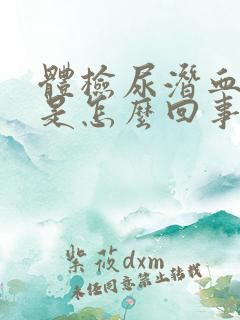 體檢尿潛血
是怎麼回事
紫筱dxm
未經同意禁止轉載